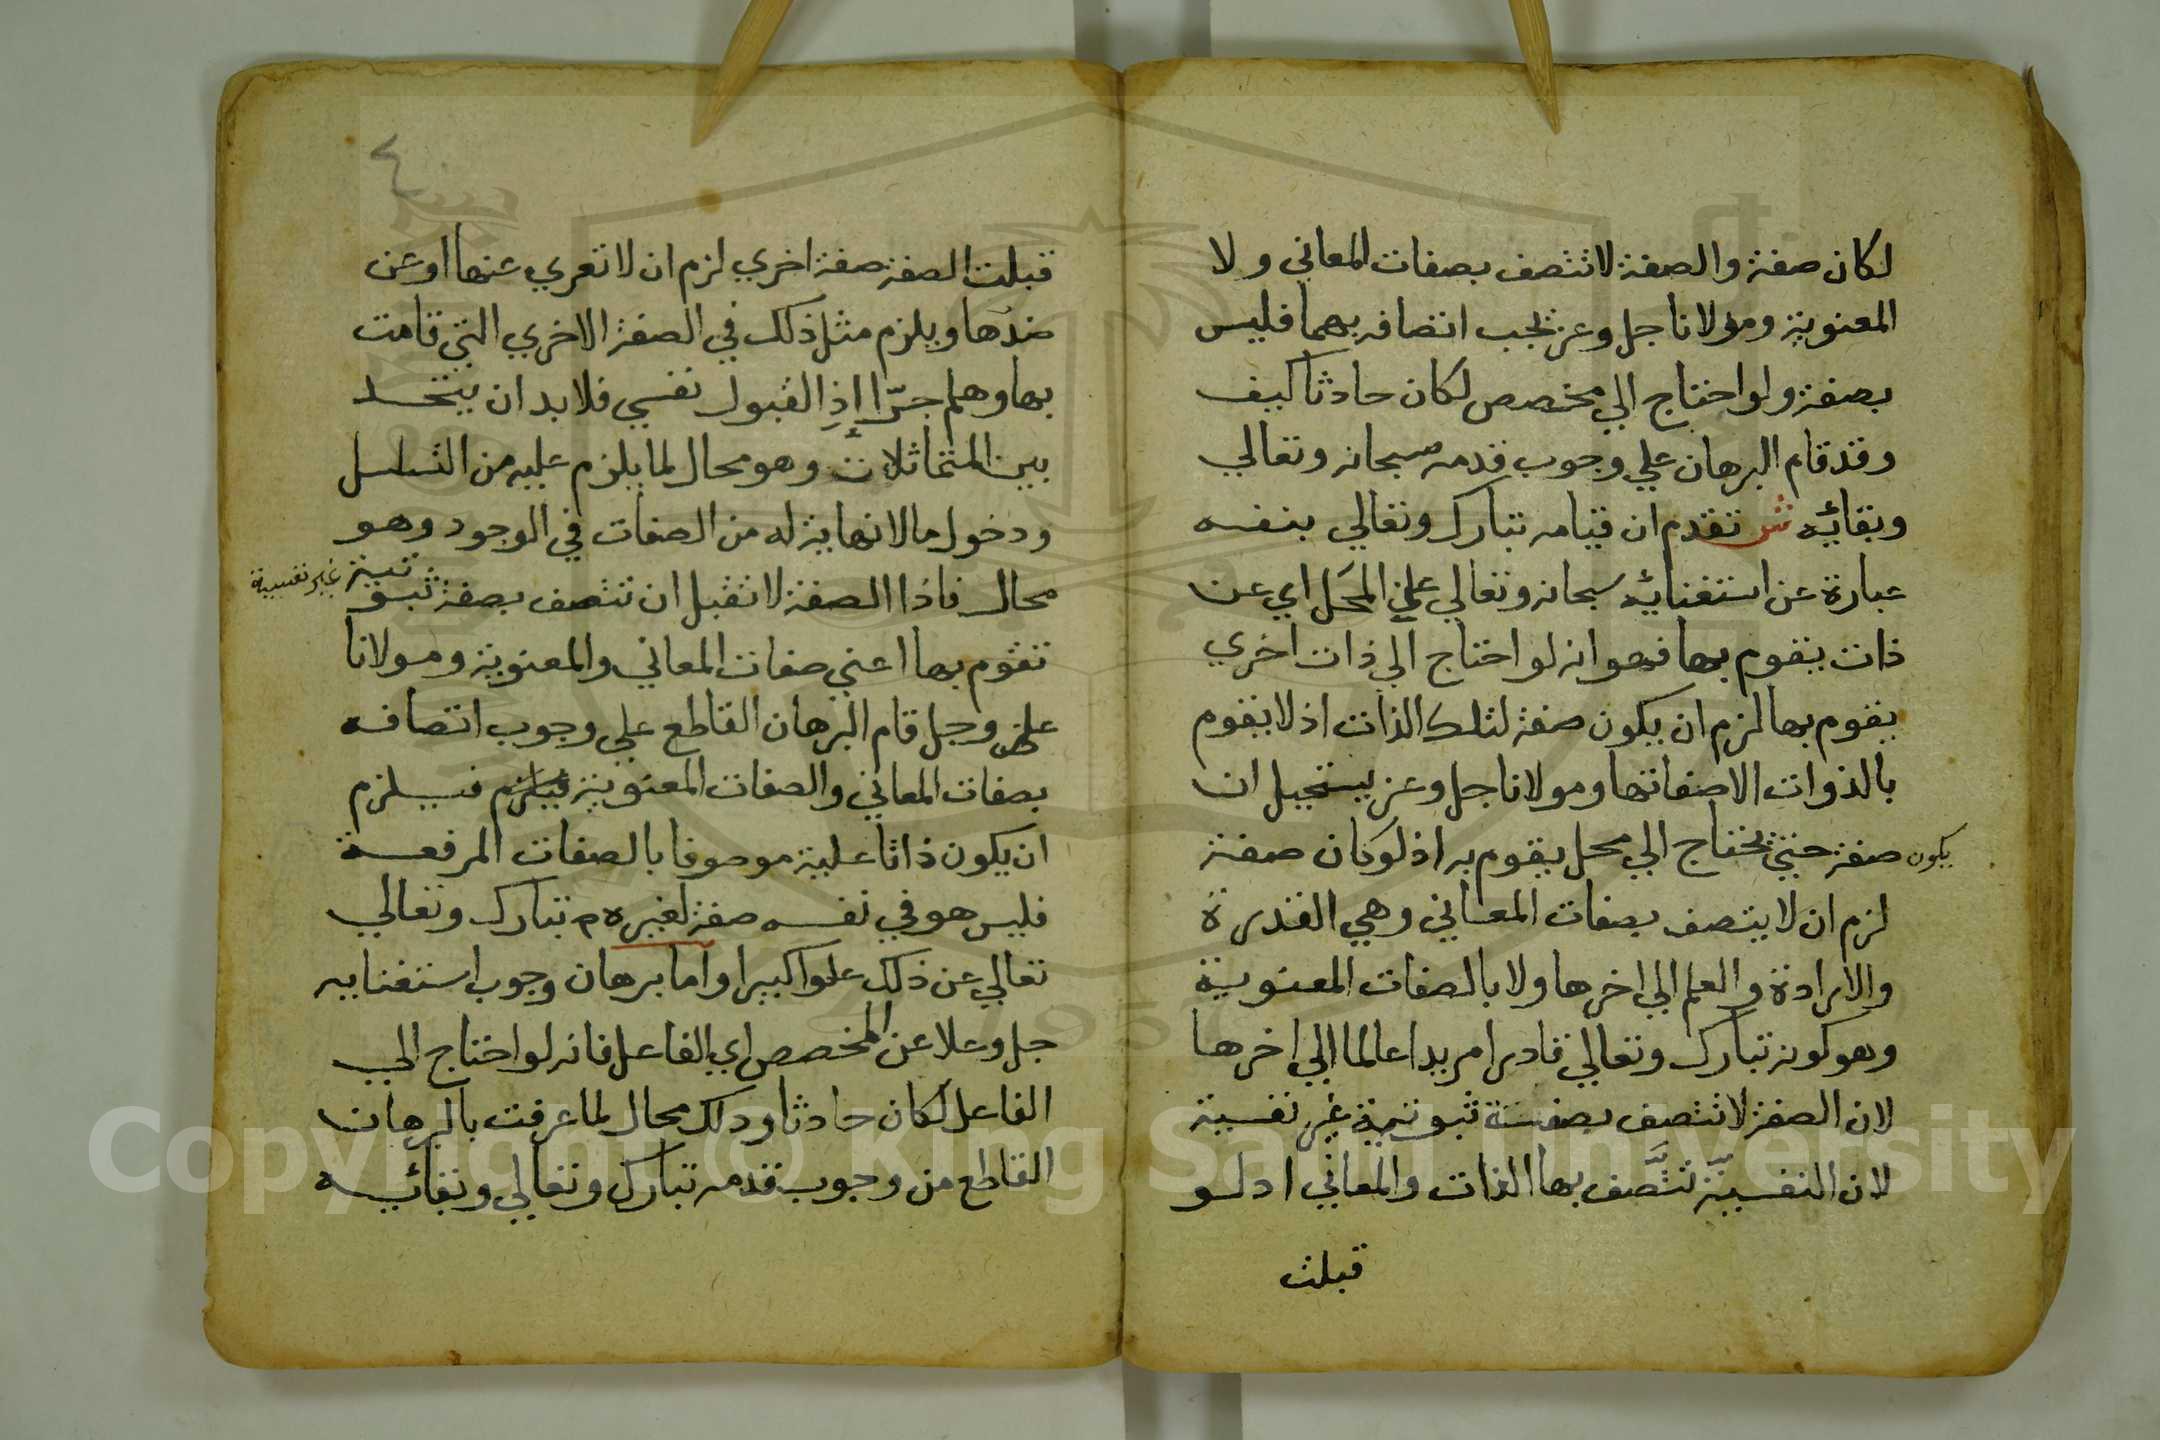 لكان صفة والصفة لا تتصف بصفات المعاني ولا
المعنوية ومولانا جل وعز يجب اتصافه بهما فليس
بصفة ولو احتاج الي مخصص لكان حادثا كيف
وقد قام البرهان علي وجوب قدمه سبحانه وتعالي
وبقائه ش تقدم ان قيامه تبارك وتعالي بنفسه
عبارة عن استغنايه سبحانه وتعالي علي المحل اي عن
ذات يقوم بها فهو انه لو احتاج الي ذات اخري
يقوم بها لزم ان يكون صفة لتلك الذات اذ لا يقوم
بالذوات الا صفاتها ومولانا جل وعز يستحيل ان
يكون صفة حتي يحتاج الي محل يقوم به اذ لو كان صفة
لزم ان لا يتصف بصفات المعاني وهي القدرة
والارادة والعلم الي اخرها ولا بالصفات المعنوية
وهو كونه تبارك وتعالي قادرا مريدا عالما الي اخرها
لان الصفة لا تتصف بصفة ثبوتية غير نفسية
لان النفسية تتصف بها الذات والمعاني اد لو
قبلت
٤
قبلت الصفة صفة اخري لزم ان لا تعري عنها او عن
ضدها ويلزم مثل ذلك في الصفة الاخري التي قامت
بها وهلم جرّا إذ القبول نفسي فلا بد ان يتحد
بين المتماثلات وهو محال لما يلزم عليه من التسلسل
ودخول ما لا نهاية له من الصفات في الوجود وهو
محال فاذا الصفة لا تقبل ان تتصف بصفة ثبوتية غير نفسية
تقوم بها اعني صفات المعاني والمعنوية ومولانا
عز وجل قام البرهان القاطع علي وجوب اتصافه
بصفات المعاني والصفات المعنوية فيلزم فيلزم
ان يكون ذاتا علية موصوفا بالصفات المرفعة
فليس هو في نفسه صفة لغيره م تبارك وتعالي
تعالي عن ذلك علوا كبيرا واما برهان وجوب استغنايه
جل وعلا عن المخصص اي الفاعل فانه لو احتاج الي
الفاعل لكان حادثا ودلك محال لما عرفت بالبرهان
القاطع من وجوب قدمه تبارك وتعالي وبقائه
Copyright © King Saud University
1957